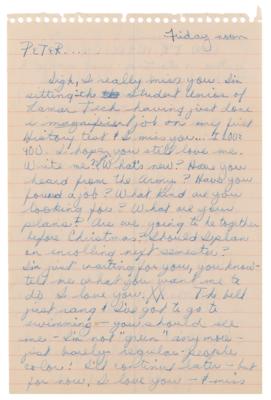 Friday noon
PETER...
Sigh, I really miss you. I'm
sitting in the Student Union of
Lamar Tech having just done
a magnificent job on my first
History test & I miss you... I LOVE
YOU. I hope you still love me.
Write me? What's new? Have you
heard from the Army? Have you
found a job? What kind are you
looking for? What are your
plans? Are we going to be together
before Christmas? Should I plan
on enrolling next semester?
I'm just waiting for you, you know -
tell me what you want me to
do. I love you. XX The bell
just rang & I've got to go to
swimming - you should see
me - I'm not "green" anymore -
just barely regular-people
color! I'll continue later - but
for now, I love you - & miss